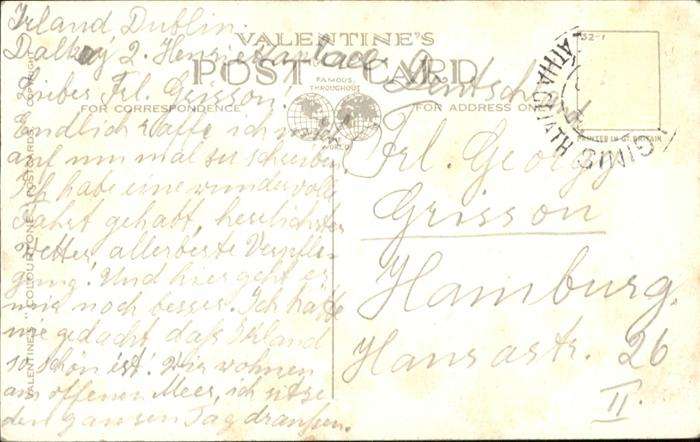 Irland, Dublin.
Dalkey 2. Henrie
VALENTINE'S
POST CARD
FAMOUS
THROUGHOUT
THE
WORLD
FOR CORRESPONDENCE
FOR ADDRESS ONLY
PRINTED IN GT. BRITAIN
S2-1
BAILE ÁTHA CLIATH
Lieber Frl. Grisson.
Endlich raffe ich mich
auf um mal zu schreiben.
Ich habe eine wundervolle
Fahrt gehabt, herrlichstes
Wetter, allerbeste Verpfle-
gung! Und hier geht es
mir noch besser. Ich hatte
nie gedacht, daß Irland
so schön ist! Wir wohnen
am offenen Meer, ich sitze
den ganzen Tag draußen.
Frl. Georgy
Grisson
Hamburg.
Hansastr. 26
II.
VALENTINE'S "COLOURTONE" POSTCARDS
COPYRIGHT